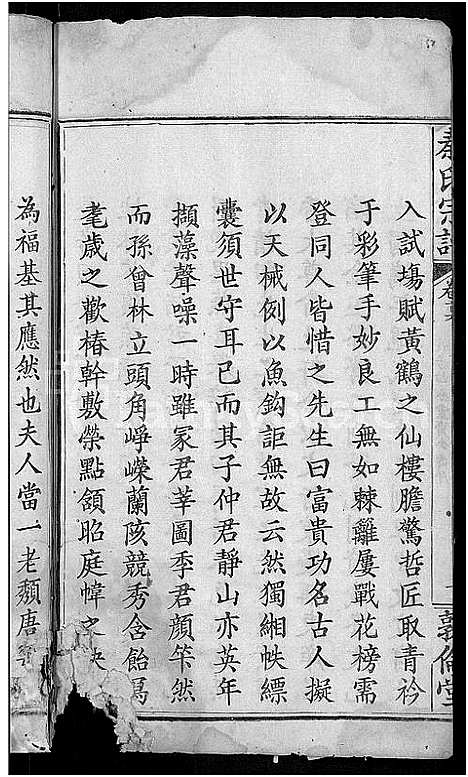 秦氏宗譜
卷六
敦倫堂
入試場賦黃鶴之仙樓膽驚哲匠取青衿
于彩筆手妙良工無如棘籬屢戰花榜需
登同人皆惜之先生曰富貴功名古人擬
以天械例以魚鈎詎無故云然獨緗帙縹
囊須世守耳已而其子仲君靜山亦英年
擷藻聲噪一時雖冢君莘圖季君顏笇然
而孫曾林立頭角崢嶸蘭陔競秀含飴為
耄歲之歡椿幹敷榮點頷昭庭幃之
為福基其應然也夫人當一老頹唐